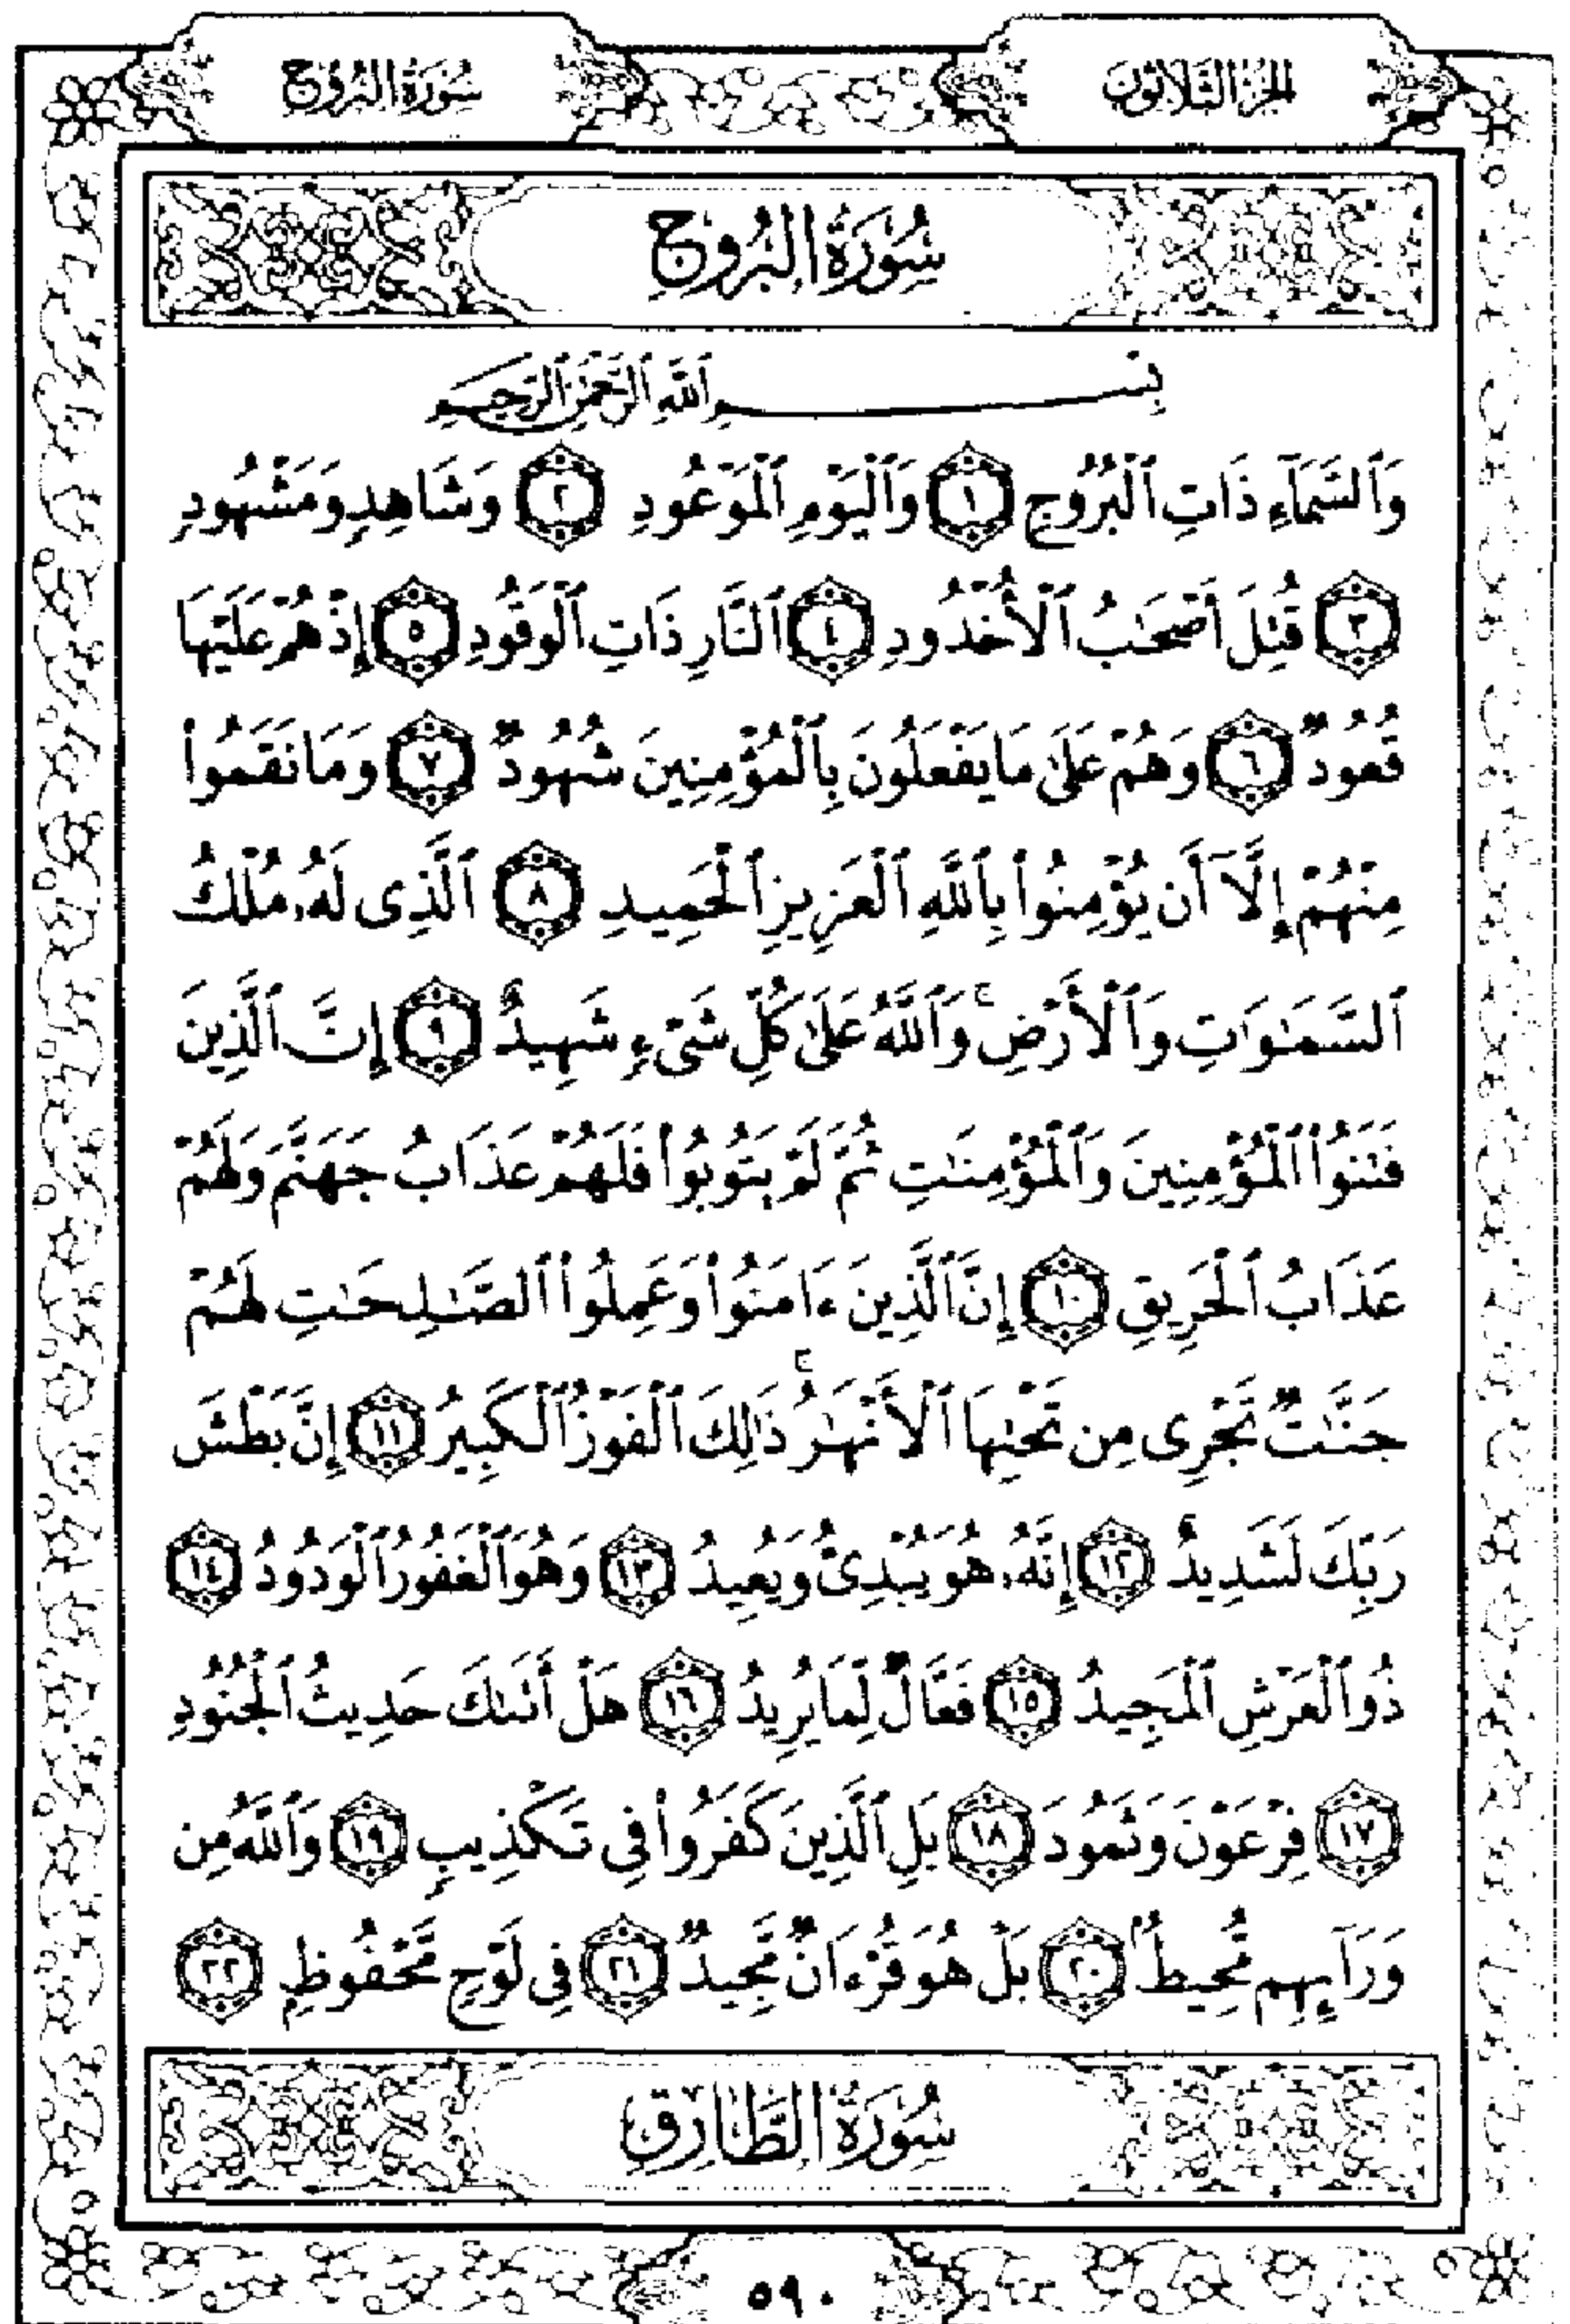 الجزء الثلاثون
سورة البروج
سُورَةُ البُرُوجِ
بِسۡمِ ٱللَّهِ ٱلرَّحۡمَٰنِ ٱلرَّحِيمِ
وَٱلسَّمَآءِ ذَاتِ ٱلۡبُرُوجِ ١ وَٱلۡيَوۡمِ ٱلۡمَوۡعُودِ ٢ وَشَاهِدٖ وَمَشۡهُودٖ
٣ قُتِلَ أَصۡحَٰبُ ٱلۡأُخۡدُودِ ٤ ٱلنَّارِ ذَاتِ ٱلۡوَقُودِ ٥ إِذۡ هُمۡ عَلَيۡهَا
قُعُودٞ ٦ وَهُمۡ عَلَىٰ مَا يَفۡعَلُونَ بِٱلۡمُؤۡمِنِينَ شُهُودٞ ٧ وَمَا نَقَمُواْ
مِنۡهُمۡ إِلَّآ أَن يُؤۡمِنُواْ بِٱللَّهِ ٱلۡعَزِيزِ ٱلۡحَمِيدِ ٨ ٱلَّذِي لَهُۥ مُلۡكُ
ٱلسَّمَٰوَٰتِ وَٱلۡأَرۡضِۚ وَٱللَّهُ عَلَىٰ كُلِّ شَيۡءٖ شَهِيدٌ ٩ إِنَّ ٱلَّذِينَ
فَتَنُواْ ٱلۡمُؤۡمِنِينَ وَٱلۡمُؤۡمِنَٰتِ ثُمَّ لَمۡ يَتُوبُواْ فَلَهُمۡ عَذَابُ جَهَنَّمَ وَلَهُمۡ
عَذَابُ ٱلۡحَرِيقِ ١٠ إِنَّ ٱلَّذِينَ ءَامَنُواْ وَعَمِلُواْ ٱلصَّٰلِحَٰتِ لَهُمۡ
جَنَّٰتٞ تَجۡرِي مِن تَحۡتِهَا ٱلۡأَنۡهَٰرُۚ ذَٰلِكَ ٱلۡفَوۡزُ ٱلۡكَبِيرُ ١١ إِنَّ بَطۡشَ
رَبِّكَ لَشَدِيدٌ ١٢ إِنَّهُۥ هُوَ يُبۡدِئُ وَيُعِيدُ ١٣ وَهُوَ ٱلۡغَفُورُ ٱلۡوَدُودُ ١٤
ذُو ٱلۡعَرۡشِ ٱلۡمَجِيدُ ١٥ فَعَّالٞ لِّمَا يُرِيدُ ١٦ هَلۡ أَتَىٰكَ حَدِيثُ ٱلۡجُنُودِ
١٧ فِرۡعَوۡنَ وَثَمُودَ ١٨ بَلِ ٱلَّذِينَ كَفَرُواْ فِي تَكۡذِيبٖ ١٩ وَٱللَّهُ مِن
وَرَآئِهِم مُّحِيطُۢ ٢٠ بَلۡ هُوَ قُرۡءَانٞ مَّجِيدٞ ٢١ فِي لَوۡحٖ مَّحۡفُوظِۭ ٢٢
سُورَةُ الطَّارِقِ
٥٩٠